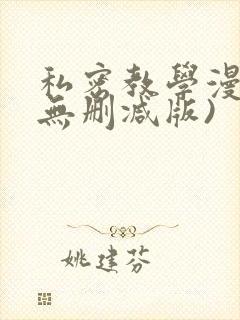 私密教學漫
無刪減版)
姚建芬